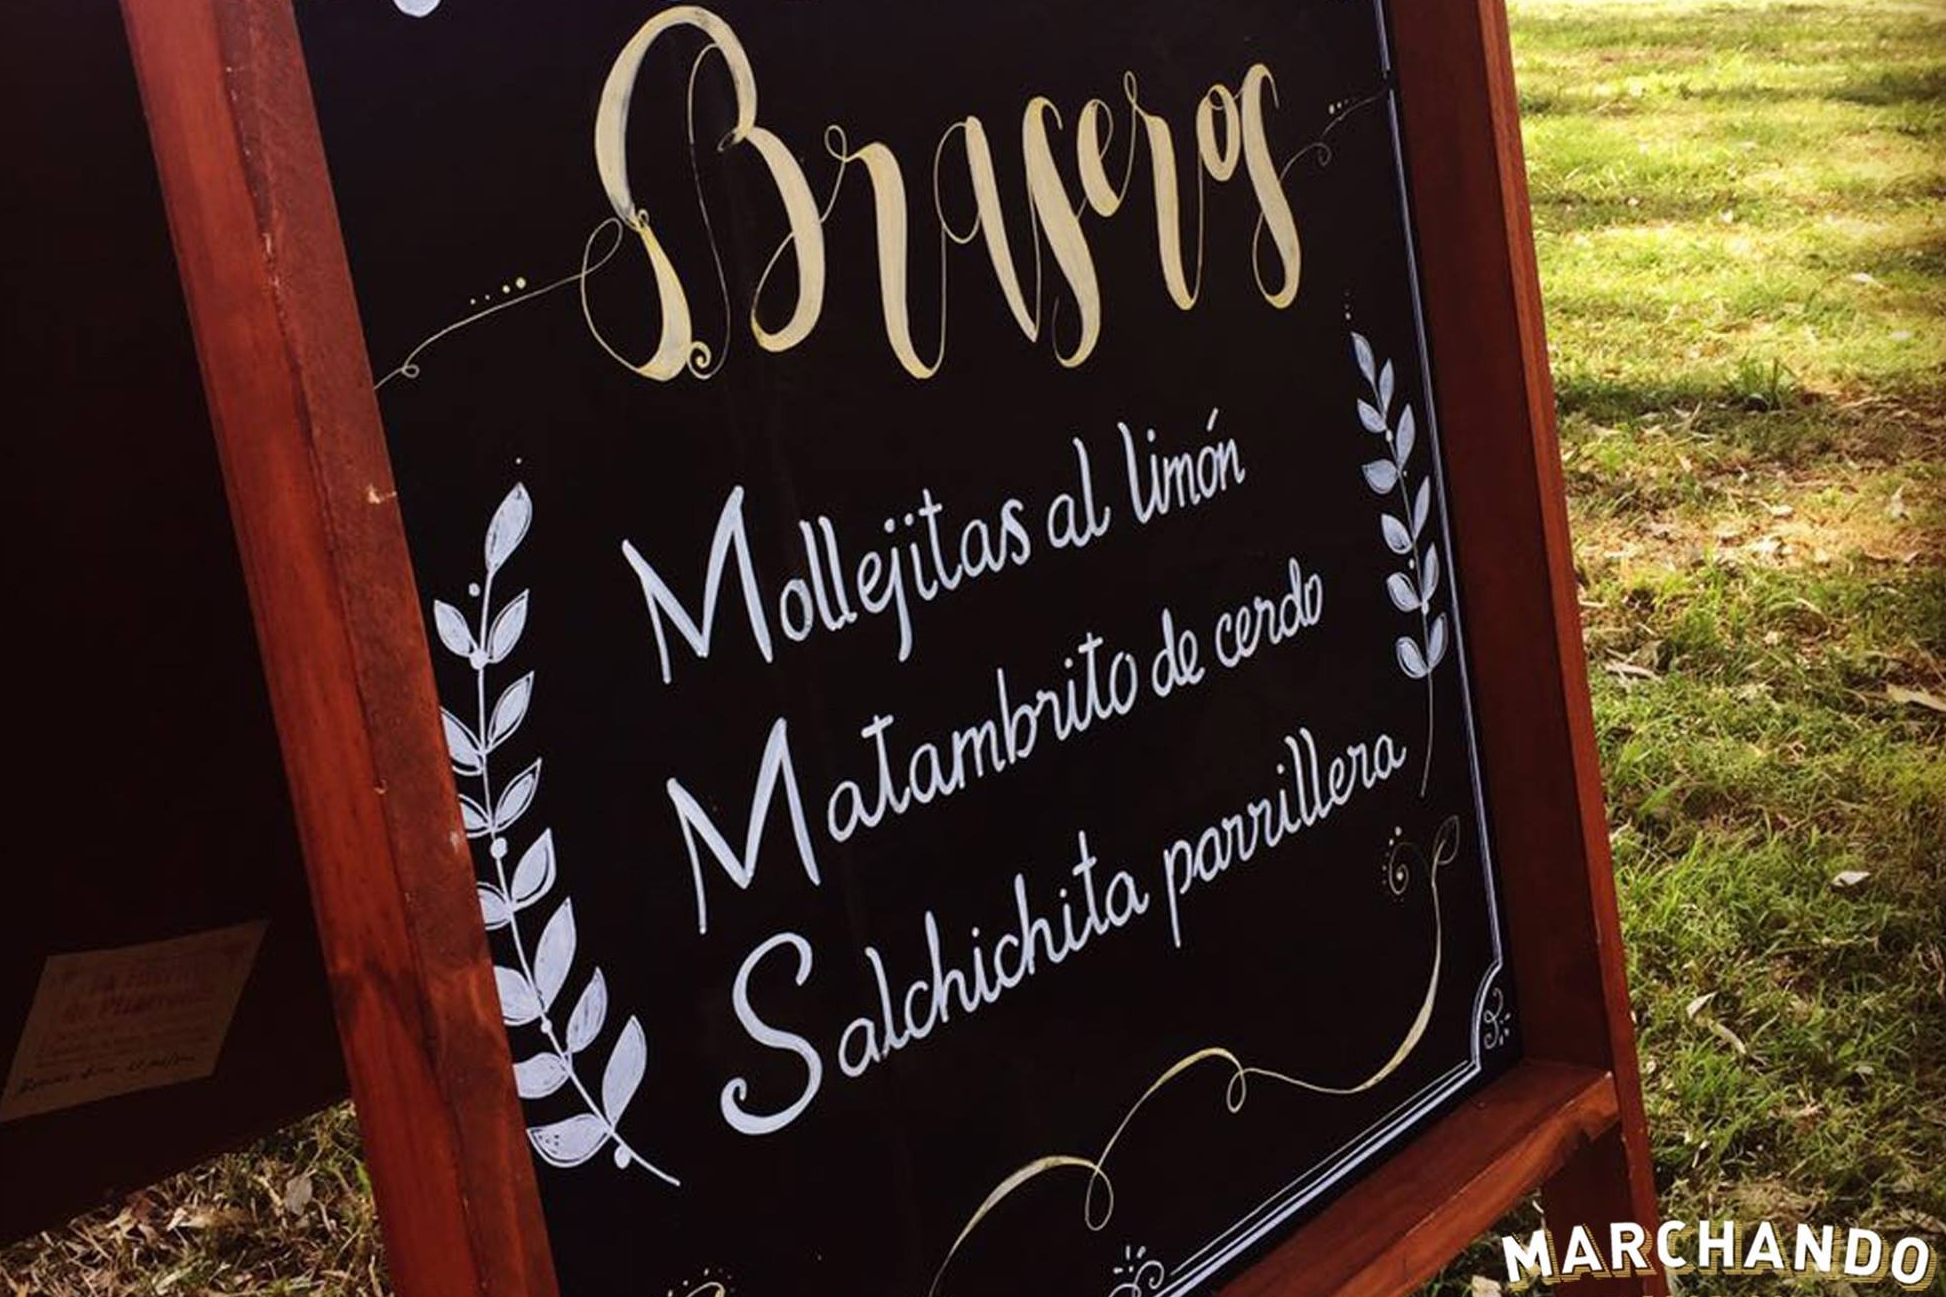 Braseros
Mollejitas al limón
Matambrito de cerdo
Salchichita parrillera
MARCHANDO